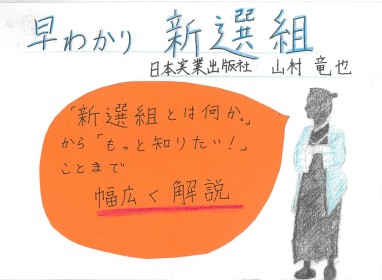 早わかり 新選組
日本実業出版社 山村 竜也
「新選組とは何か。」
から「もっと知りたい！」
ことまで
幅広く解説